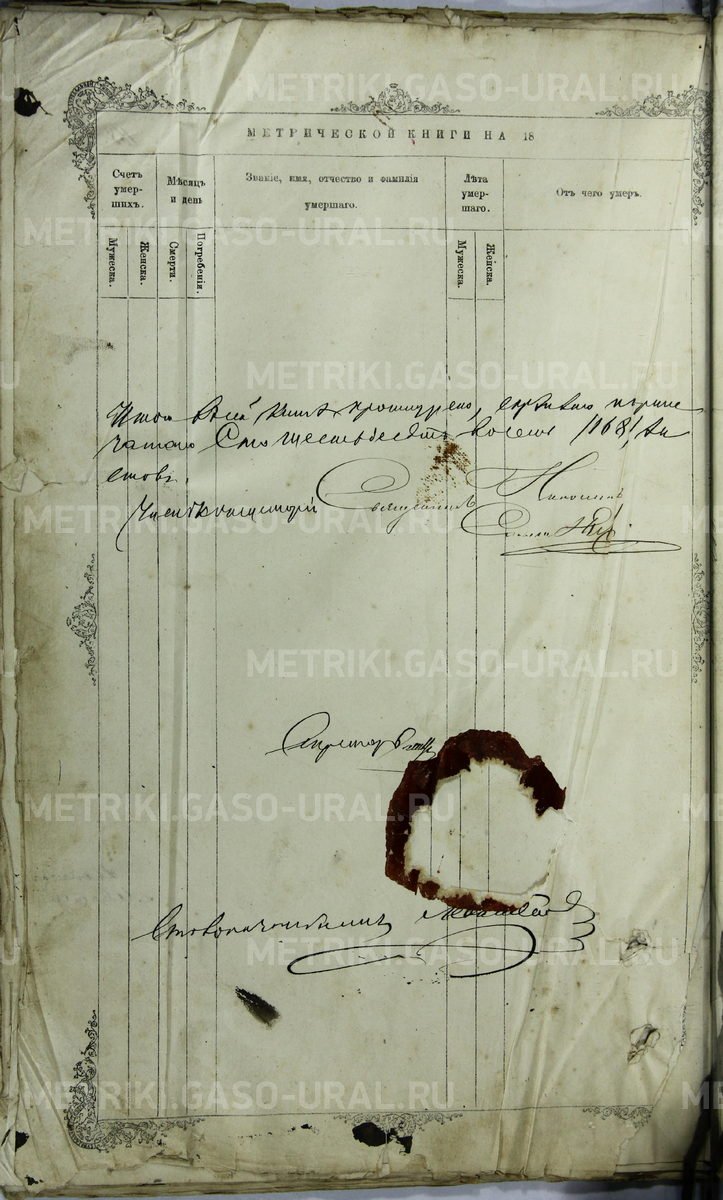 METRIKI.GASO-URAL.RU
МЕТРИЧЕСКОЙ КНИГИ НА 18
Счетъ умер-шихъ.
Мѣсяцъ и день
Званіе, имя, отчество и фамилія
умершаго.
Лѣта умер-шаго.
Отъ чего умеръ.
Мужеска.
Женска.
Смерти.
Погребенія.
Мужеска.
Женска.
Итого въ сей книгѣ прошнурено, скрѣплено и припе
чатано Сто шестьдесятъ восемь /168/ ли
стовъ.
Членъ Консисторіи Священникъ
Секретарь
Столоначальникъ